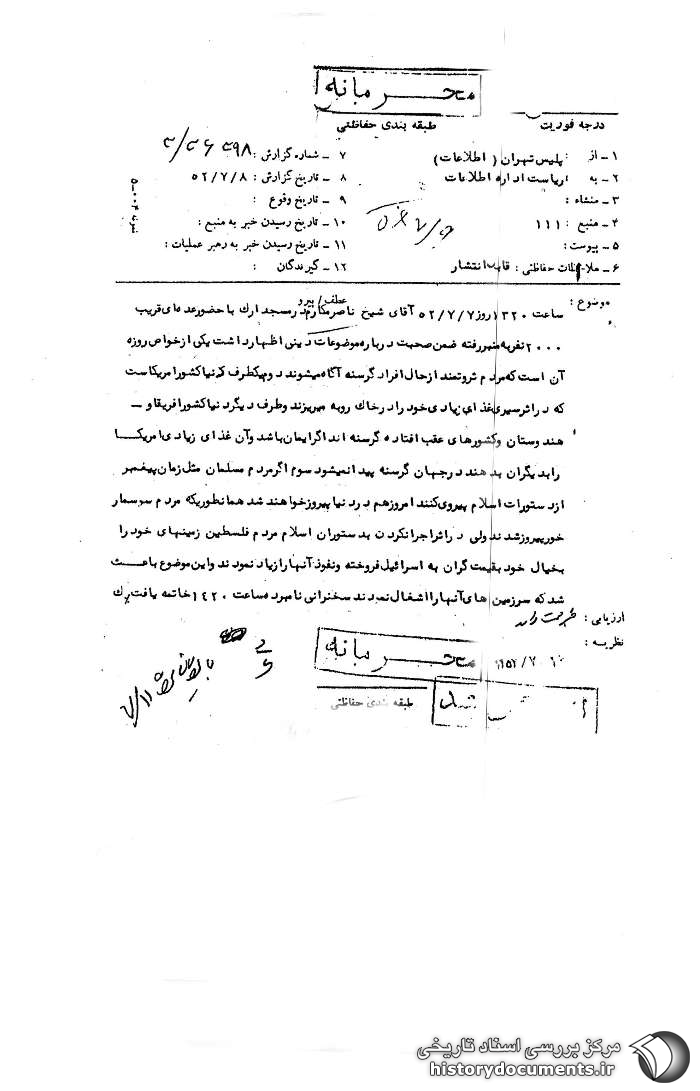 محرمانه
درجه فوریت
طبقه بندی حفاظتی
۱ - از : پلیس تهران ( اطلاعات )
۷ - شماره گزارش :
۲ - به : ریاست اداره اطلاعات
۸ - تاریخ گزارش : ۵۲/۷/۸
۳ - منشاء :
۹ - تاریخ وقوع :
۴ - منبع : ۱۱۱
۱۰ - تاریخ رسیدن خبر به منبع :
۵ - پیوست :
۱۱ - تاریخ رسیدن خبر به رهبر عملیات :
۶ - ملاحظات حفاظتی : قابل انتشار
۱۲ - گیرندگان :
نمونه ۰۰۴-۵
موضوع :
عطف/ پیرو
ساعت ۱۳۲۰ روز ۵۲/۷/۷ آقای شیخ ناصر مکارم در مسجد ارک با حضور عده ای قریب
۲۰۰۰ نفر به منبر رفته ضمن صحبت درباره موضوعات دینی اظهار داشت یکی از خواص روزه
آن است که مردم ثروتمند از حال افراد گرسنه آگاه میشوند دوم یکطرف کره دنیا کشور امریکاست
که در اثر سیری غذای زیادی خود را در خاک روبه میریزند و طرف دیگر دنیا کشور افریقا و -
هندوستان و کشورهای عقب افتاده گرسنه اند اگر ایمان باشد و آن غذای زیادی امریکا
را بدیگران بدهند در جهان گرسنه پیدا نمیشود سوم اگر مردم مسلمان مثل زمان پیغمبر
از دستورات اسلام پیروی کنند امروز هم در دنیا پیروز خواهند شد همانطوریکه مردم سوسمار
خور پیروز شدند ولی در اثر اجرا نکردن بدستوران اسلام مردم فلسطین زمینهای خود را
بخیال خود بقیمت گران به اسرائیل فروخته و نفوذ آنها را زیاد نمودند و این موضوع باعث
شد که سرزمین های آنها را اشغال نمودند سخنرانی نامبرده ساعت ۱۴۲۰ خاتمه یافت
ارزیابی :
نظریه :
محرمانه
طبقه بندی حفاظتی
مرکز بررسی اسناد تاریخی
historydocuments.ir